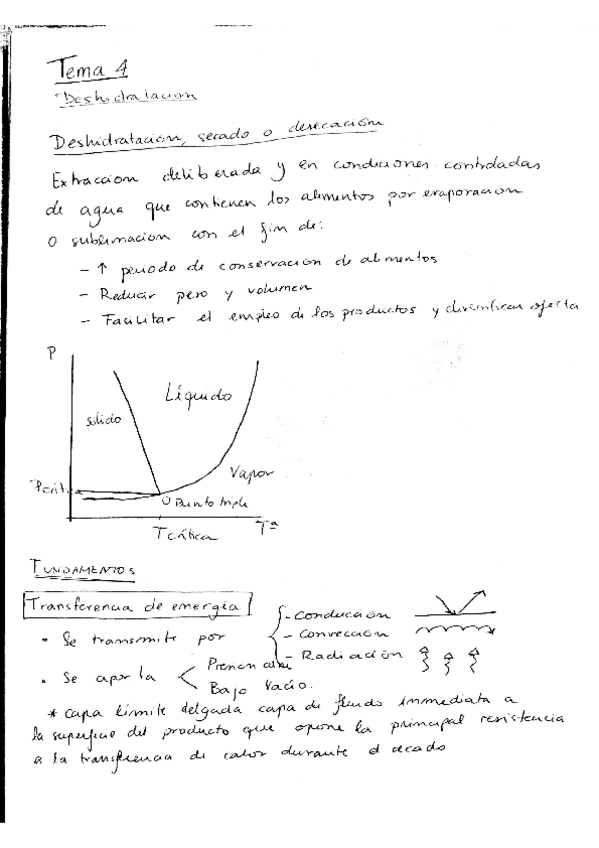 Tema 4
Deshidratación
Deshidratación, secado o desecación
Extracción deliberada y en condiciones controladas
de agua que contienen los alimentos por evaporación
o sublimación con el fin de:
- ↑ periodo de conservación de alimentos
- Reducir peso y volumen
- Facilitar el empleo de los productos y diversificar oferta
P
Líquido
sólido
Vapor
Pcrítica
Punto triple
Tcrítica
Tª
FUNDAMENTOS
Transferencia de energía
- Conducción
• Se transmite por
- Convección
- Radiación
• Se aporta
Presión atm
Bajo vacío.
* capa límite delgada capa de fluido inmediata a
la superficie del producto que opone la principal resistencia
a la transferencia de calor durante el secado